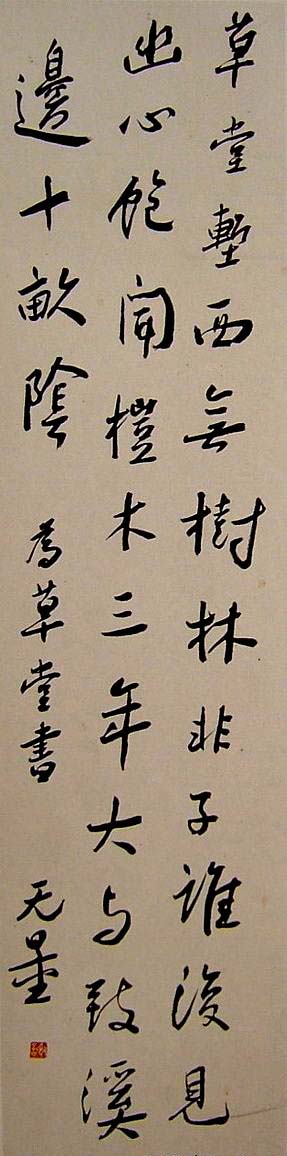 草堂塹西無樹林非子誰復見
幽心飽聞榿木三年大与致溪
邊十畝陰
為草堂書
无量